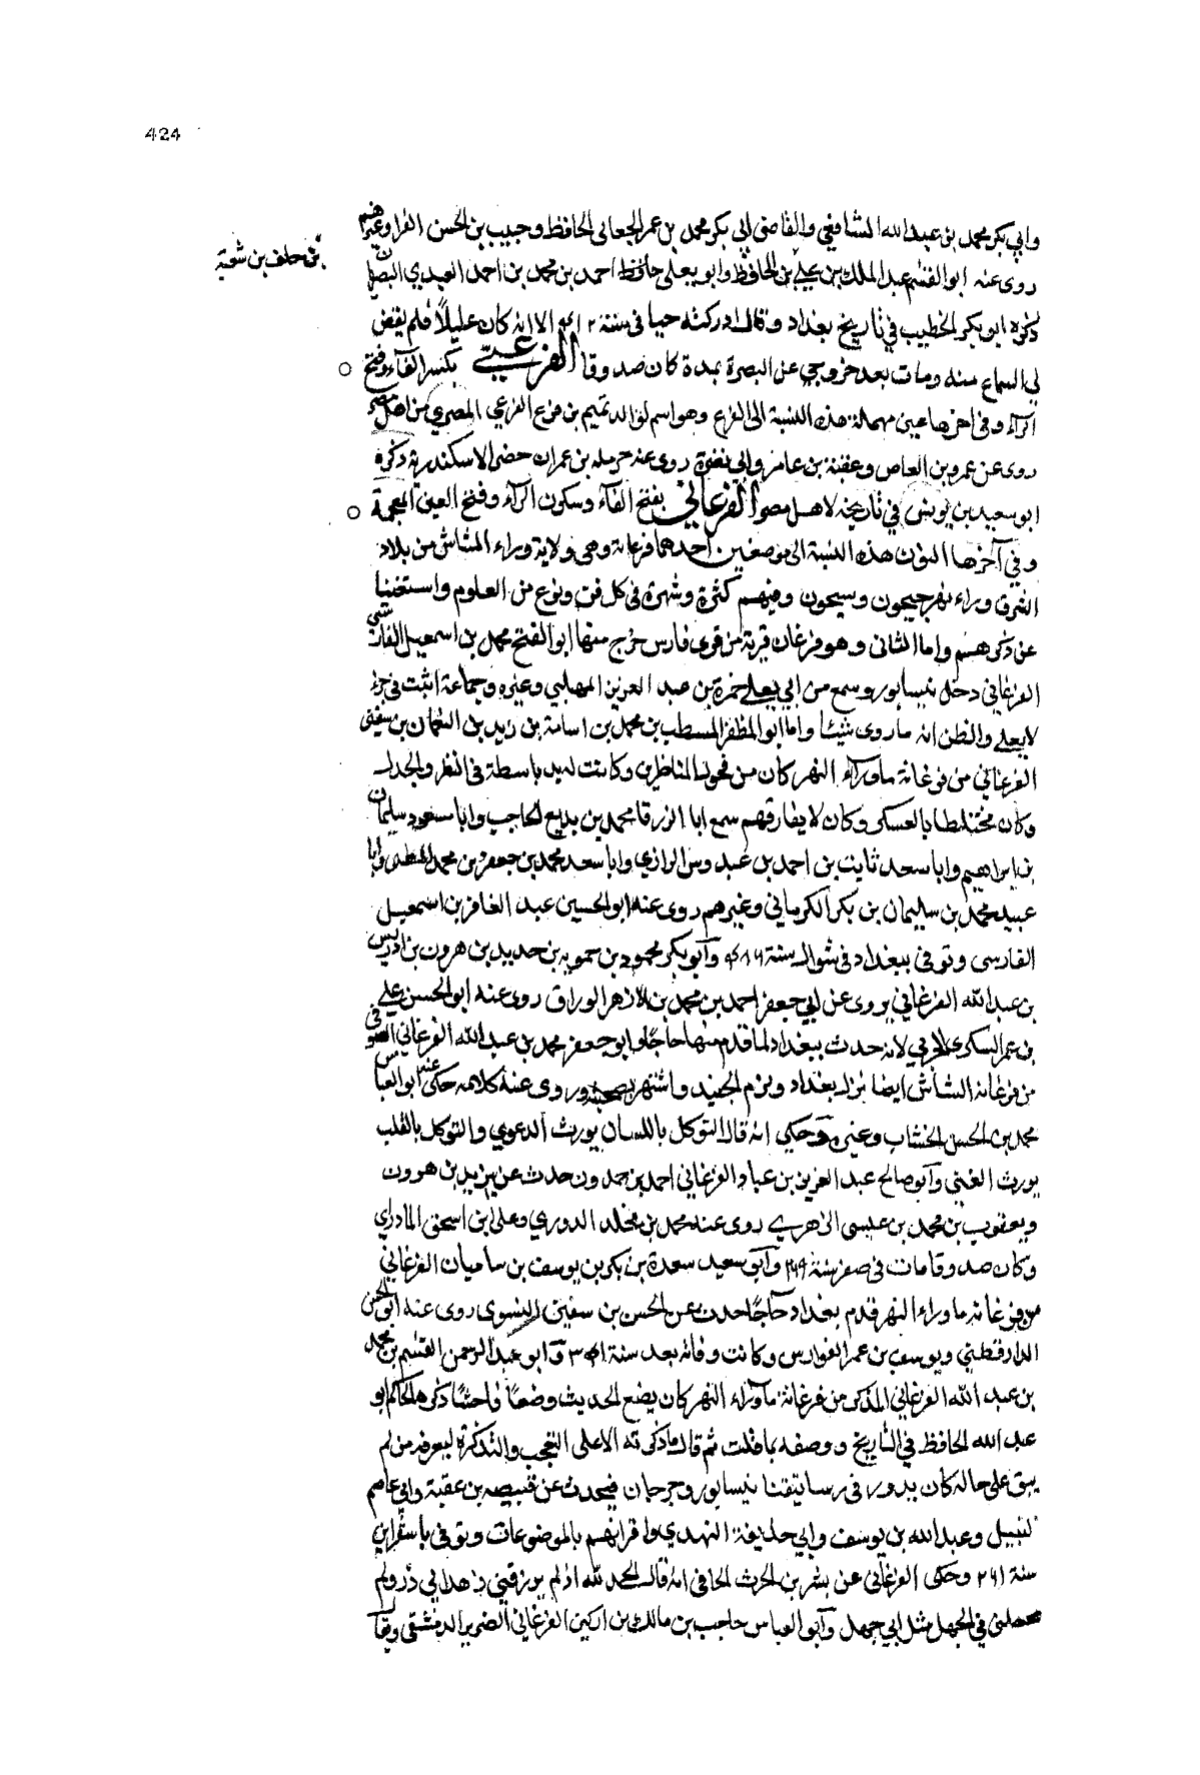 424
وابي بكر محمد بن عبد الله الشافعي والقاضي ابي بكر محمد بن عمر الجعابي الحافظ وحبيب بن الحسن القزاز وغيرهم
بن خلف بن شعبة
روى عنه ابو القسم عبد الملك بن علي بن الحافظ وابو يعلى حافظ احمد بن محمد بن احمد العبدي البصريان
ذكره ابو بكر الخطيب في تاريخ بغداد وقال ادركته حيا في سنة الا انه كان عليلاً فلم يقض
لي السماع منه ومات بعد خروجي عن البصرة بمدة كان صدوقا الفرعي بكسر الفآء وفتح
الرآء وفي اخرها عين مهملة هذه النسبة الى الفرع وهو اسم لوالد تميم بن فرع الفرعي المصري من اهل مصر
روى عن عمرو بن العاص وعقبة بن عامر وابي بصرة روى عنه حرملة بن عمران حضر الاسكندرية ذكره
ابو سعيد بن يونس في تاريخه لاهل مصر الفرغاني بفتح الفآء وسكون الرآء وفتح الغين المعجمة
وفي آخرها النون هذه النسبة الى موضعين احدهما فرغانة وهي ولاية وراء الشاش من بلاد
الشرق وراء نهر جيحون وسيحون وفيهم كثرة وشهرة في كل فن ونوع من العلوم واستغنينا
عن ذكرهم واما الثاني وهو فرغان قرية من قرى فارس خرج منها ابو الفتح محمد بن اسمعيل الفارسي
الفرغاني دخل نيسابور وسمع من ابي يعلى حمزة بن عبد العزيز المهلبي وغيره وجماعة اثبت في جزء
لابي يعلى والظن انه ما روى شيئا واما ابو المظفر المسطب بن محمد بن اسامة بن زيد بن النعمان بن سفين
الفرغاني من فرغانة ماورآء النهر كان من فحول المناظرين وكانت له يد باسطة في النظر والجدل
وكان مختلطا بالعسكر وكان لا يفارقهم سمع ابا الزرقا محمد بن بديع الحاجب وابا مسعود سليمان
بن ابراهيم وابا سعد ثابت بن احمد بن عبدوس الرازي وابا سعد محمد بن جعفر بن محمد المطهر وابا
عبيد محمد بن سليمان بن بكر الكرماني وغيرهم روى عنه ابو الحسين عبد الغافر بن اسمعيل
الفارسي وتوفي ببغداد في شوال سنة ٤٨٦ وابو بكر محمود بن حمويه بن حديد بن هرون بن ادريس
بن عبد الله الفرغاني يروى عن ابي جعفر احمد بن محمد بن الازهر الوراق روى عنه ابو الحسن علي
بن عمر السكري الحربي لانه حدث ببغداد لما قدم منها حاجا وابو جعفر محمد بن عبد الله الفرغاني الصوفي
من فرغانة الشاش ايضا نزل بغداد ولزم الجنيد واشتهر بصحبته وروى عنه كلامه حكى عنه ابو العباس
محمد بن الحسن الخشاب وغيره وحكي انه قال التوكل باللسان يورث الدعوي والتوكل بالقلب
يورث الغنى وآبو صالح عبد العزيز بن عباد الفرغاني احمد بن حمدون حدث عن يزيد بن هرون
ويعقوب بن محمد بن عيسى الزهري روى عنه محمد بن مخلد الدوري وعلي بن اسحق المادراي
وكان صدوقا مات في صفر سنة ٢٦٩ وآبو سعيد سعدة بن بكر بن يوسف بن ساميان الفرغاني
من فرغانة ما وراء النهر قدم بغداد حآجًا حدث عن الحسن بن سفين النسوى روى عنه ابو الحسن
الدارقطني ويوسف بن عمر القواس وكانت وفاته بعد سنة وآبو عبد الرحمن القسم بن محمد
بن عبد الله الفرغاني المذكر من فرغانة مآورآء النهر كان يضع الحديث وضعًا فاحشًا ذكره الحاكم ابو
عبد الله الحافظ في التاريخ ووصفه بما قلت ثم قال ما ذكرته الا على التعجب والتذكرة ليعرفه من لم
يبق على حاله كان يدور في رساتيقنا نيسابور وجرجان فيحدث عن قبيصه بن عقبة وابي عاصم
النبيل وعبد الله بن يوسف وابي حذيفة النهدي واقرانهم بالموضوعات وتوفي باسفراين
سنة ٢٦١ وحكى الفرغاني عن بشر بن الحرث الحافي انه قال الحمد لله اذ لم يرزقني زهد ابي ذر ولم
يجعلني في الجهل مثل ابي جهل وآبو العباس حاجب بن مالك بن اركين الفرغاني الضرير الدمشقي ويقال